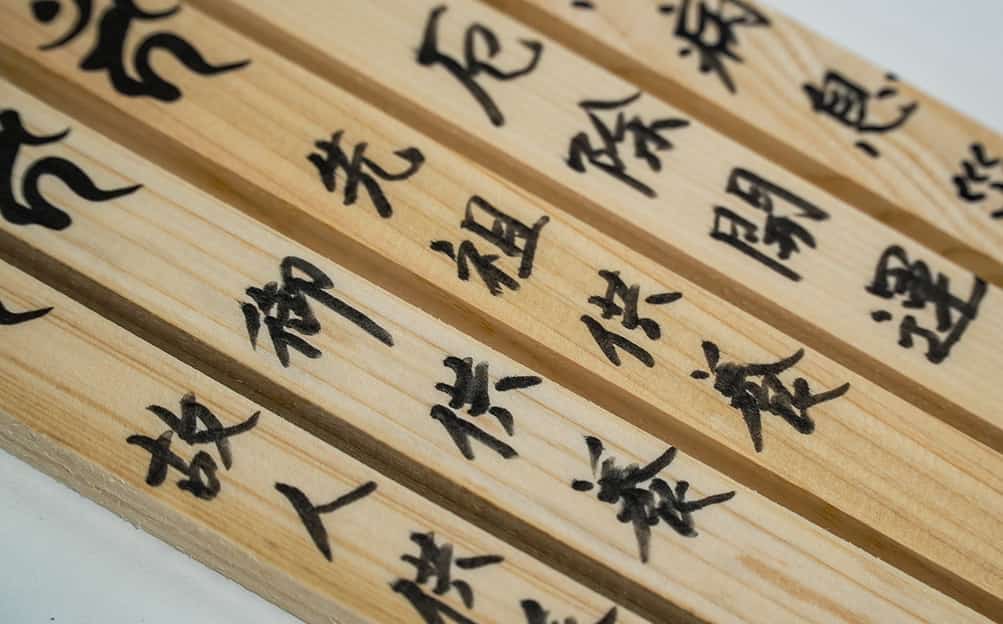 病息
厄除開運
先祖供養
御供養
故人供